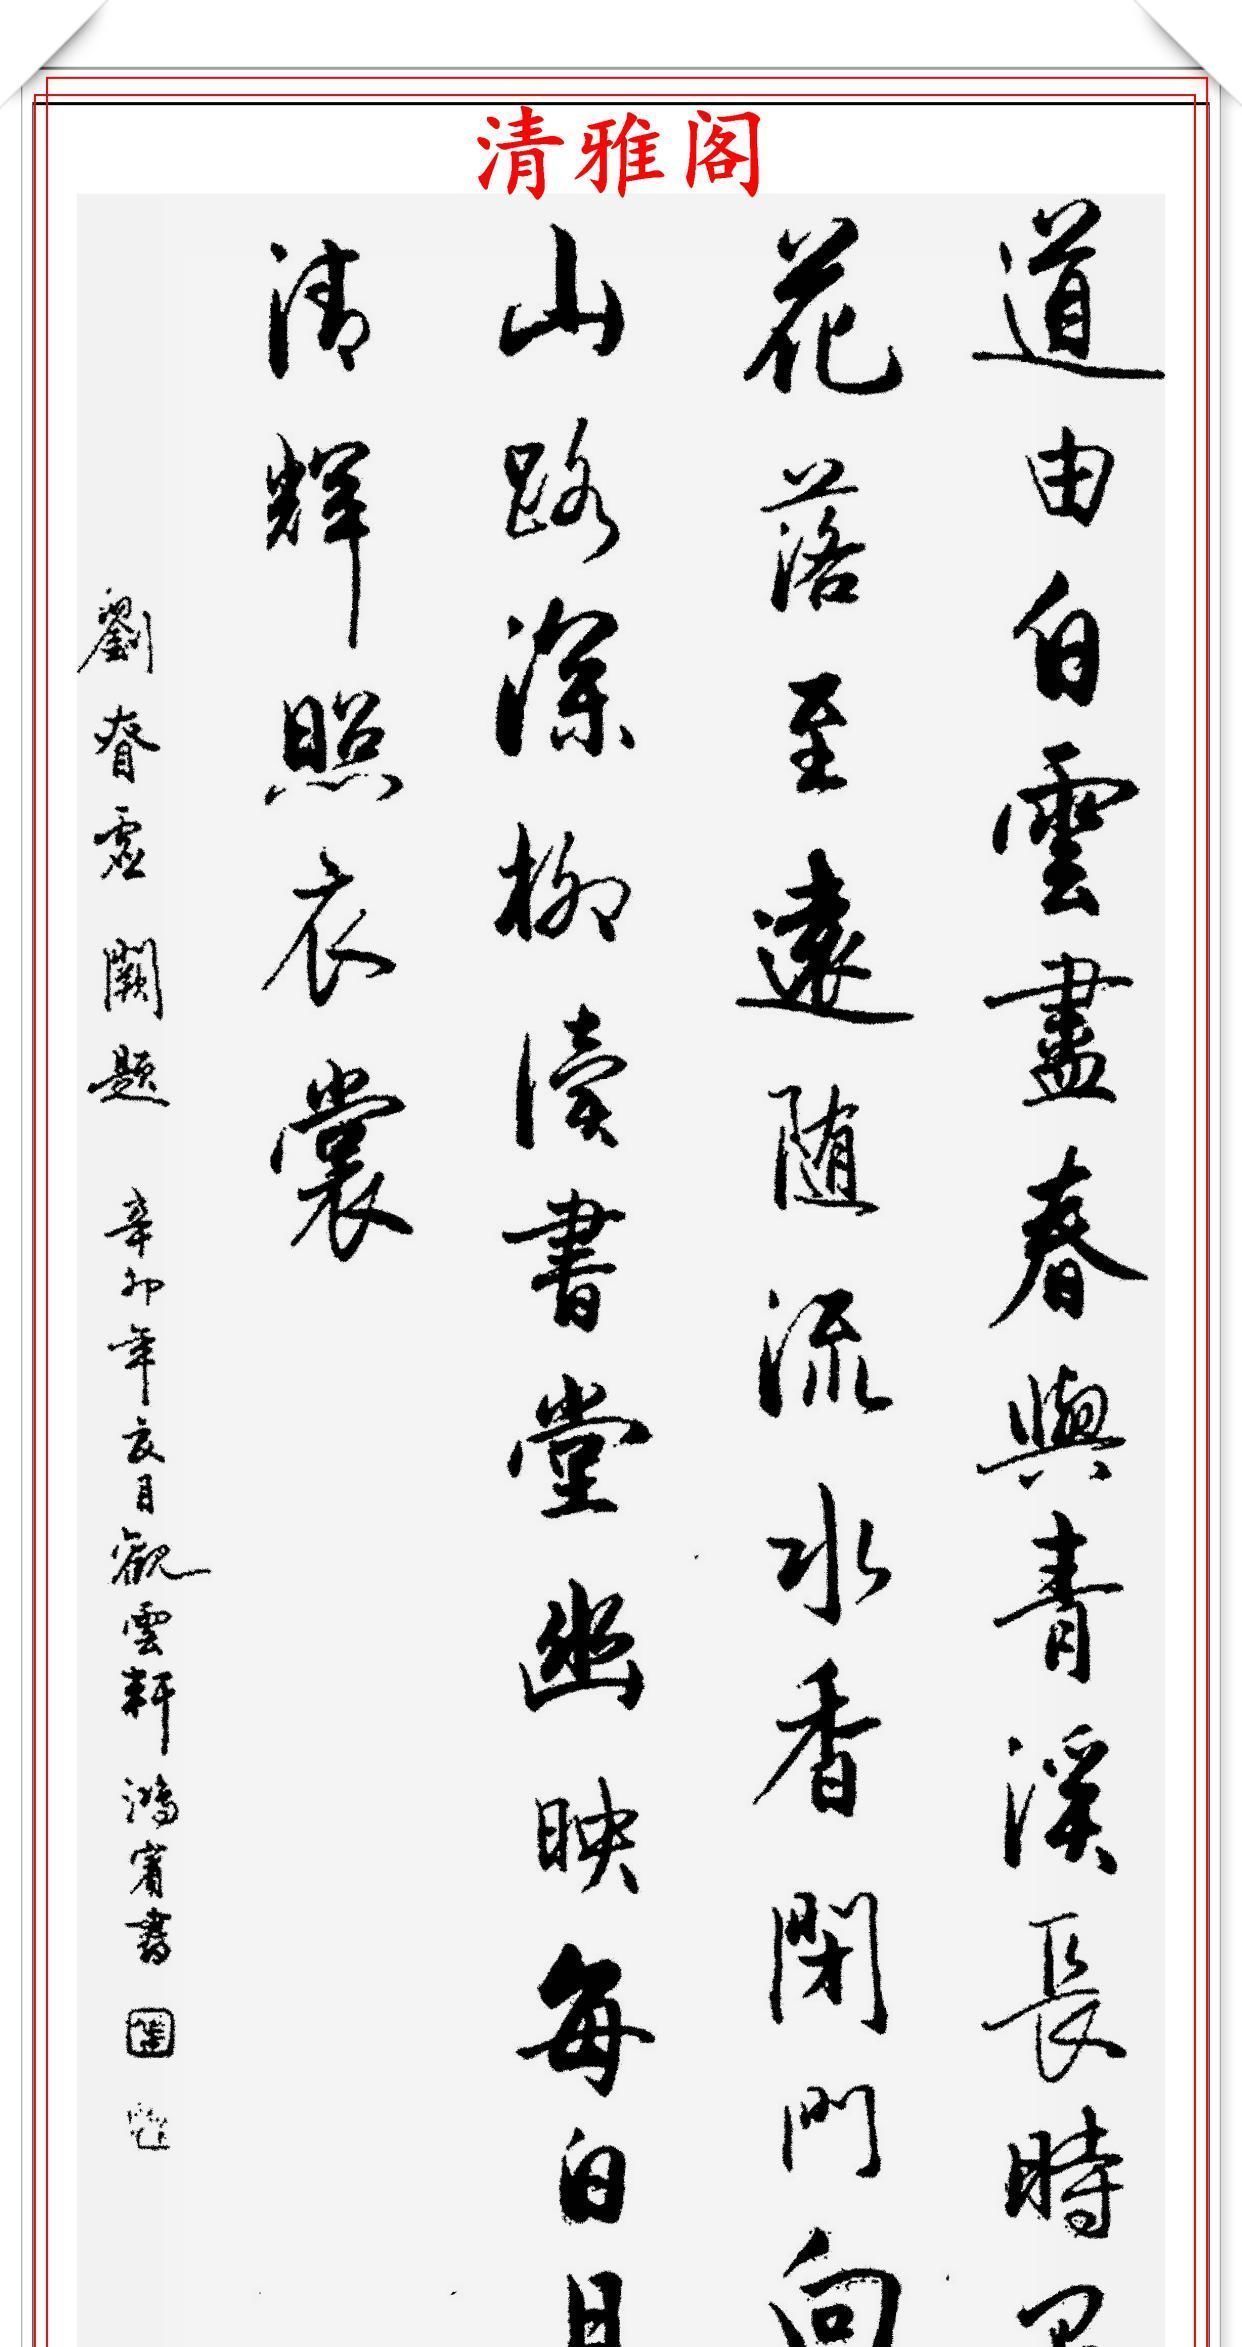 清雅阁
道由白雲盡春與青溪長時
花落至遠随流水香閑門向
山路深柳讀書堂幽映每白日
清輝照衣裳
劉眘虛闕題 辛卯年亥月觀雲軒鴻賓書